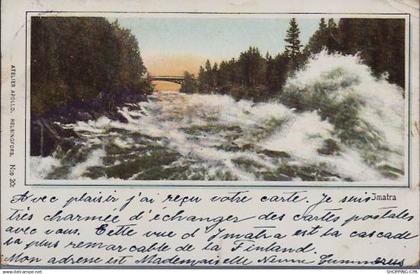 ATELIER APOLLO, HELSINGFORS, N:o 20
Imatra
Avec plaisir j'ai reçu votre carte. Je suis
très charmée d'échanger des cartes postales
avec vous. Cette vue d'Imatra est la cascade
la plus remarcable de la Finland.
Mon adresse est Mademoiselle Nimmi